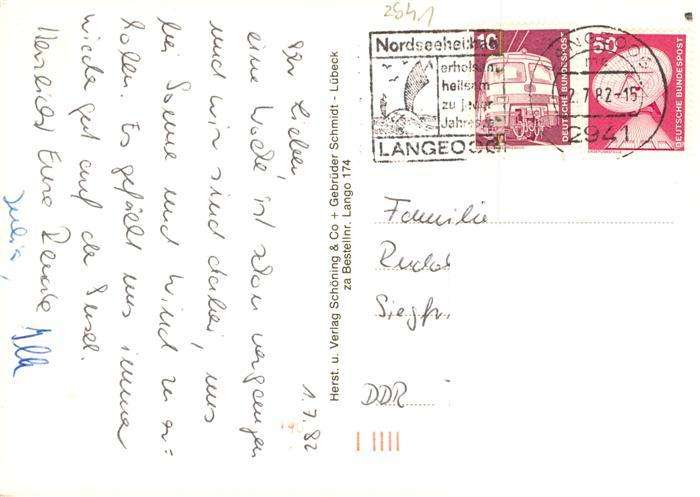 1.7.82
Ihr Lieben,
eine Woche ist schon vergangen
und wir sind dabei, uns
bei Sonne und Wind zu er=
holen. Es gefällt uns immer
wieder gut auf der Insel.
Herzlichst Eure Renate
Julia,
Herst. u. Verlag Schöning & Co + Gebrüder Schmidt - Lübeck
za Bestellnr. Lango 174
2941
Nordseeheilbad
erholsam
heilsam
zu jeder
Jahreszeit
LANGEOOG
10
DEUTSCHE BUNDESPOST
50
DEUTSCHE BUNDESPOST
LANGEOOG
2.7.82-15
2941
Familie
Rudol
Siegfr.
DDR